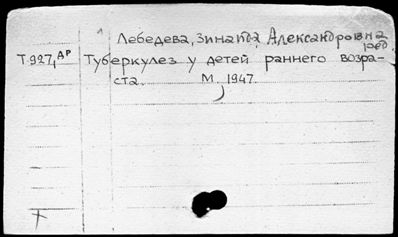 Лебедева, Зинаида Александровна
ред.
Т.927, др
Туберкулез у детей раннего возра-
ста. М. 1947.